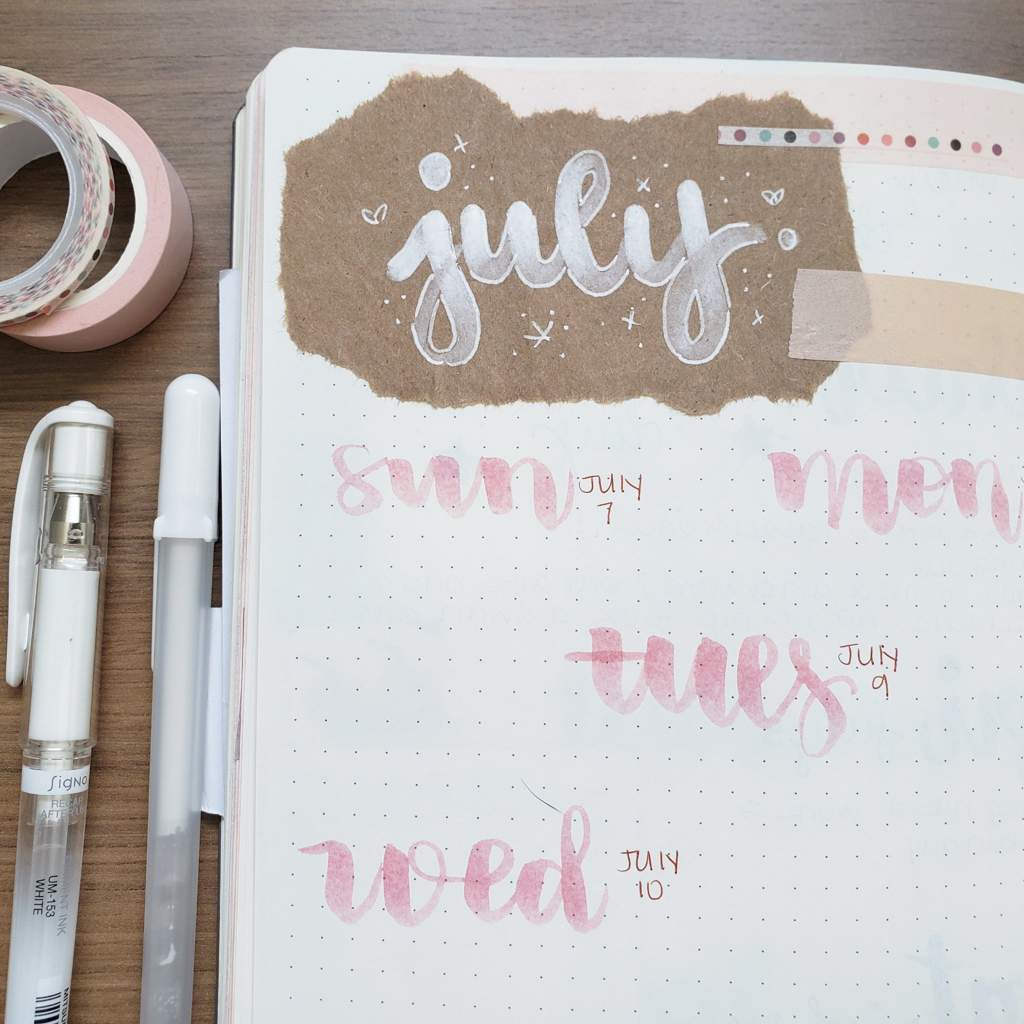 july
sun JULY 7
mon
tues JULY 9
wed JULY 10
SigNO
UM-153
WHITE